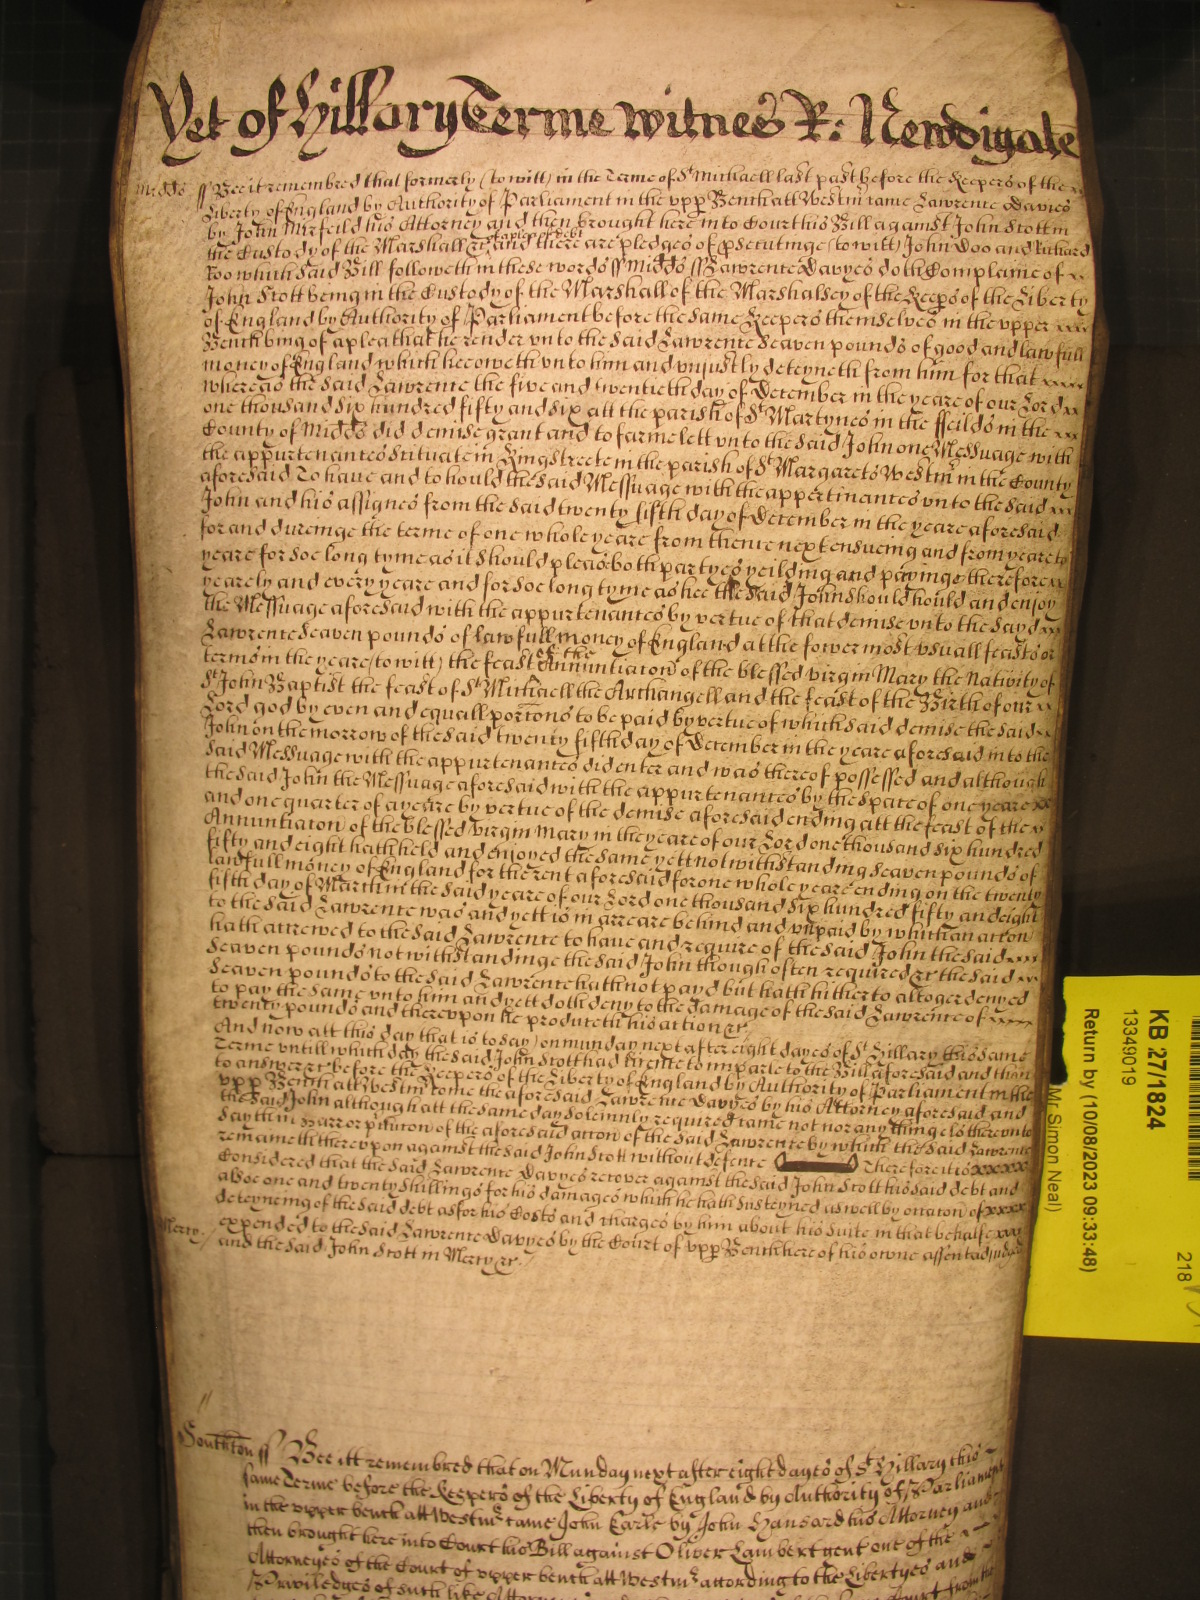 Yet of Hillary Terme witnes R: Newdigate
Midds ss Bee it remembred that formerly (to witt) in the Terme of St Michaell last past before the Keepers of the
Liberty of England by Authority of Parliament in the upp Bench att Westmr came Lawrence Davies
by John Mirfeild his Attorney and then brought here into Court his Bill against John Stott in
the Custody of the Marshall &c of a plea of debt and there are pledges of psecutinge (to witt) John Doo and Richard
Roo which said Bill followeth in these words ss Midds ss Lawrence Davyes doth Complaine of
John Stott being in the Custody of the Marshall of the Marshalsey of the Keeps of the Liberty
of England by Authority of Parliament before the same Keepers themselves in the upper
Bench bing of a plea that he render unto the said Lawrence seaven pounds of good and lawfull
money of England which hee oweth unto him and unjustly deteyneth from him for that
whereas the said Lawrence the five and twentieth day of December in the yeare of our Lord
one thousand six hundred fifty and six att the parish of St Martynes in the ffeilds in the
County of Midds did demise grant and to farme lett unto the said John one Messuage with
the appurtenances scituate in Kingstreete in the parish of St Margarets Westmr in the County
aforesaid To have and to hould the said Messuage with the appertinances unto the said
John and his assignes from the said twenty fifth day of December in the yeare aforesaid
for and dureinge the terme of one whole yeare from thence next ensueing and from yeare to
yeare for soe long tyme as it should please both partyes yeilding and payinge therefore
yearely and every yeare and for soe long tyme as hee the said John should hould and enjoy
the Messuage aforesaid with the appurtenances by vertue of that demise unto the sayd
Lawrence seaven pounds of lawfull money of England at the fower most usuall feasts or
termes in the yeare (to witt) the feast of the Annuntiacon of the blessed virgin Mary the Nativity of
St John Baptist the feast of St Michaell the Archangell and the feast of the Birth of our
Lord god by even and equall porcons to be paid by vertue of which said demise the said
John on the morrow of the said twenty fifth day of December in the yeare aforesaid into the
said Messuage with the appurtenances did enter and was thereof possessed and although
the said John the Messuage aforesaid with the appurtenances by the space of one yeare
and one quarter of a yeare by vertue of the demise aforesaid ending att the feast of the
Annuntiacon of the blessed virgin Mary in the yeare of our Lord one thousand six hundred
fifty and eight hath held and enjoyed the same yett notwithstanding seaven pounds of
lawfull money of England for the rent aforesaid for one whole yeare ending on the twenty
fifth day of March in the said yeare of our Lord one thousand six hundred fifty and eight
to the said Lawrence was and yett is in arreare behind and unpaid by which an accon
hath accrewed to the said Lawrence to have and require of the said John the said
seaven pounds notwithstandinge the said John though often required &c the said
seaven pounds to the said Lawrence hath not payd but hath hitherto altoger denyed
to pay the same unto him and yett doth deny to the damage of the said Lawrence of
twenty pounds and thereupon he produceth his action &c
And now att this day that is to say on munday next after eight dayes of St Hillary this same
Terme untill which day the said John Stott had licence to imparle to the Bill aforesaid and then
to answer &c before the Keepers of the Liberty of England by Authority of Parliament in the
upp Bench att Westmr come the aforesaid Lawrence Davyes by his Attorney aforesaid and
the said John although att the same day solemnly required came not nor any thing els thereunto
sayth in barr or pclucon of the aforesaid accon of the said Lawrence by which the said Lawrence
remaineth thereupon against the said John Stott without defence Therefore it is
Considered that the said Lawrence Davyes recover against the said John Stott his said debt and
alsoe one and twenty shillings for his damages which he hath susteyned aswell by occacon of
deteyneing of the said debt as for his Costs and charges by him about his suite in that behalfe
expended to the said Lawrence Davyes by the Court of upp Bench here of his owne assent adjudged
Mercy. and the said John Stott in Mercy &c.
Southton ss Bee itt remembred that on Munday next after eight dayes of St Hillary this
same Terme before the Keepers of the Liberty of England by Authority of Parliament
in the upper bench att Westmr came John Earle by John Hansard his Attorney and
then brought here into Court his Bill against Oliver Lambert gent one of the
Attorneyes of the Court of upper bench att Westmr according to the Libertyes and
Priviledges of such like
KB 27/1824
13349019
Return by (10/08/2023 09:33:48)
Mr Simon Neal)
218